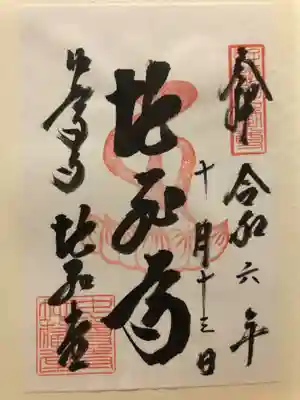 奉拝
令和六年
十月十三日
地蔵尊
中尊寺
地蔵堂